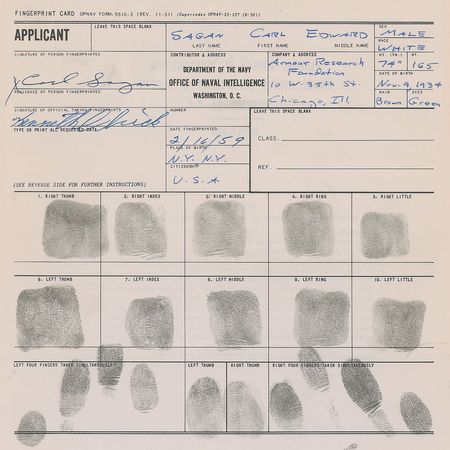 FINGERPRINT CARD OPNAV FORM-5510-2 (REV. 11-51) (Supersedes OPNAV-23-227 (6-50))
APPLICANT
LEAVE THIS SPACE BLANK
SAGAN CARL EDWARD
LAST NAME FIRST NAME MIDDLE NAME
SEX
MALE
RACE
WHITE
SIGNATURE OF PERSON FINGERPRINTED
Carl Sagan
RESIDENCE OF PERSON FINGERPRINTED
CONTRIBUTOR & ADDRESS
DEPARTMENT OF THE NAVY
OFFICE OF NAVAL INTELLIGENCE
WASHINGTON, D. C.
COMPANY & ADDRESS
Armour Research
Foundation
10 W. 35th St.
Chicago, Ill.
HT. (IN.) WT.
74" 165
DATE OF BIRTH
Nov. 9 1934
HAIR EYES
Brown Green
SIGNATURE OF OFFICIAL TAKING FINGERPRINTS
Kenneth
TYPE OR PRINT ALL REQUESTED DATA
NUMBER
DATE FINGERPRINTED
2/16/59
PLACE OF BIRTH
N.Y. N.Y.
CITIZENSHIP
U.S.A
LEAVE THIS SPACE BLANK
CLASS.
REF.
(SEE REVERSE SIDE FOR FURTHER INSTRUCTIONS)
1. RIGHT THUMB 2. RIGHT INDEX 3. RIGHT MIDDLE 4. RIGHT RING 5. RIGHT LITTLE
6. LEFT THUMB 7. LEFT INDEX 8. LEFT MIDDLE 9. LEFT RING 10. LEFT LITTLE
LEFT FOUR FINGERS TAKEN SIMULTANEOUSLY LEFT THUMB RIGHT THUMB RIGHT FOUR FINGERS TAKEN SIMULTANEOUSLY